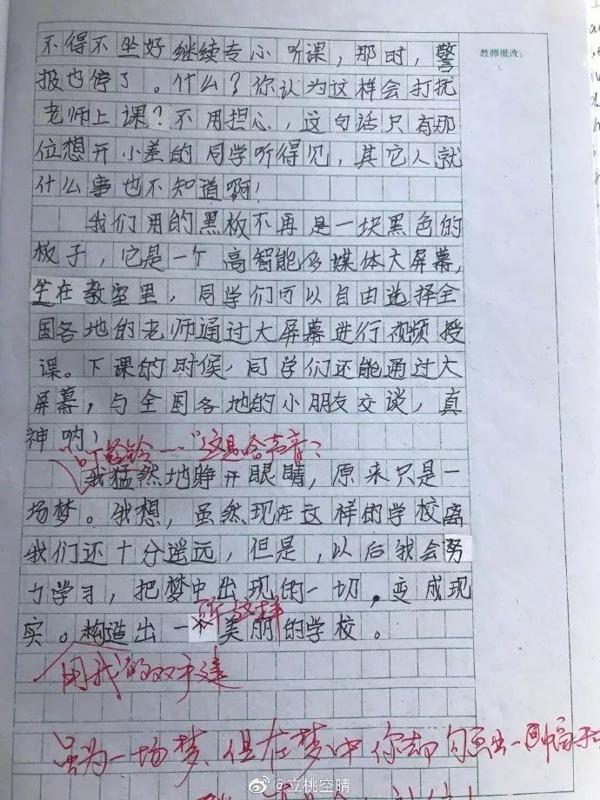 教师批改：
不得不坐好继续专心听课，那时，警
报也停了。什么？你认为这样会打扰
老师上课？不用担心，这句话只有那
位想开小差的同学听得见，其它人就
什么事也不知道啊！
我们用的黑板不再是一块黑色的
板子，它是一个高智能多媒体大屏幕，
坐在教室里，同学们可以自由选择全
国各地的老师通过大屏幕进行视频授
课。下课的时候，同学们还能通过大
屏幕，与全国各地的小朋友交谈，真
神哟！
“叮铃铃——”这是啥声音？
我猛然地睁开眼睛，原来只是一
场梦。我想，虽然现在这样的学校离
我们还十分遥远，但是，以后我会努
力学习，把梦中出现的一切，变成现
实。构造出一个美丽的学校。
所这样
用我的双手建
虽为一场梦，但在梦中你却勾画出一
@立桃空晴